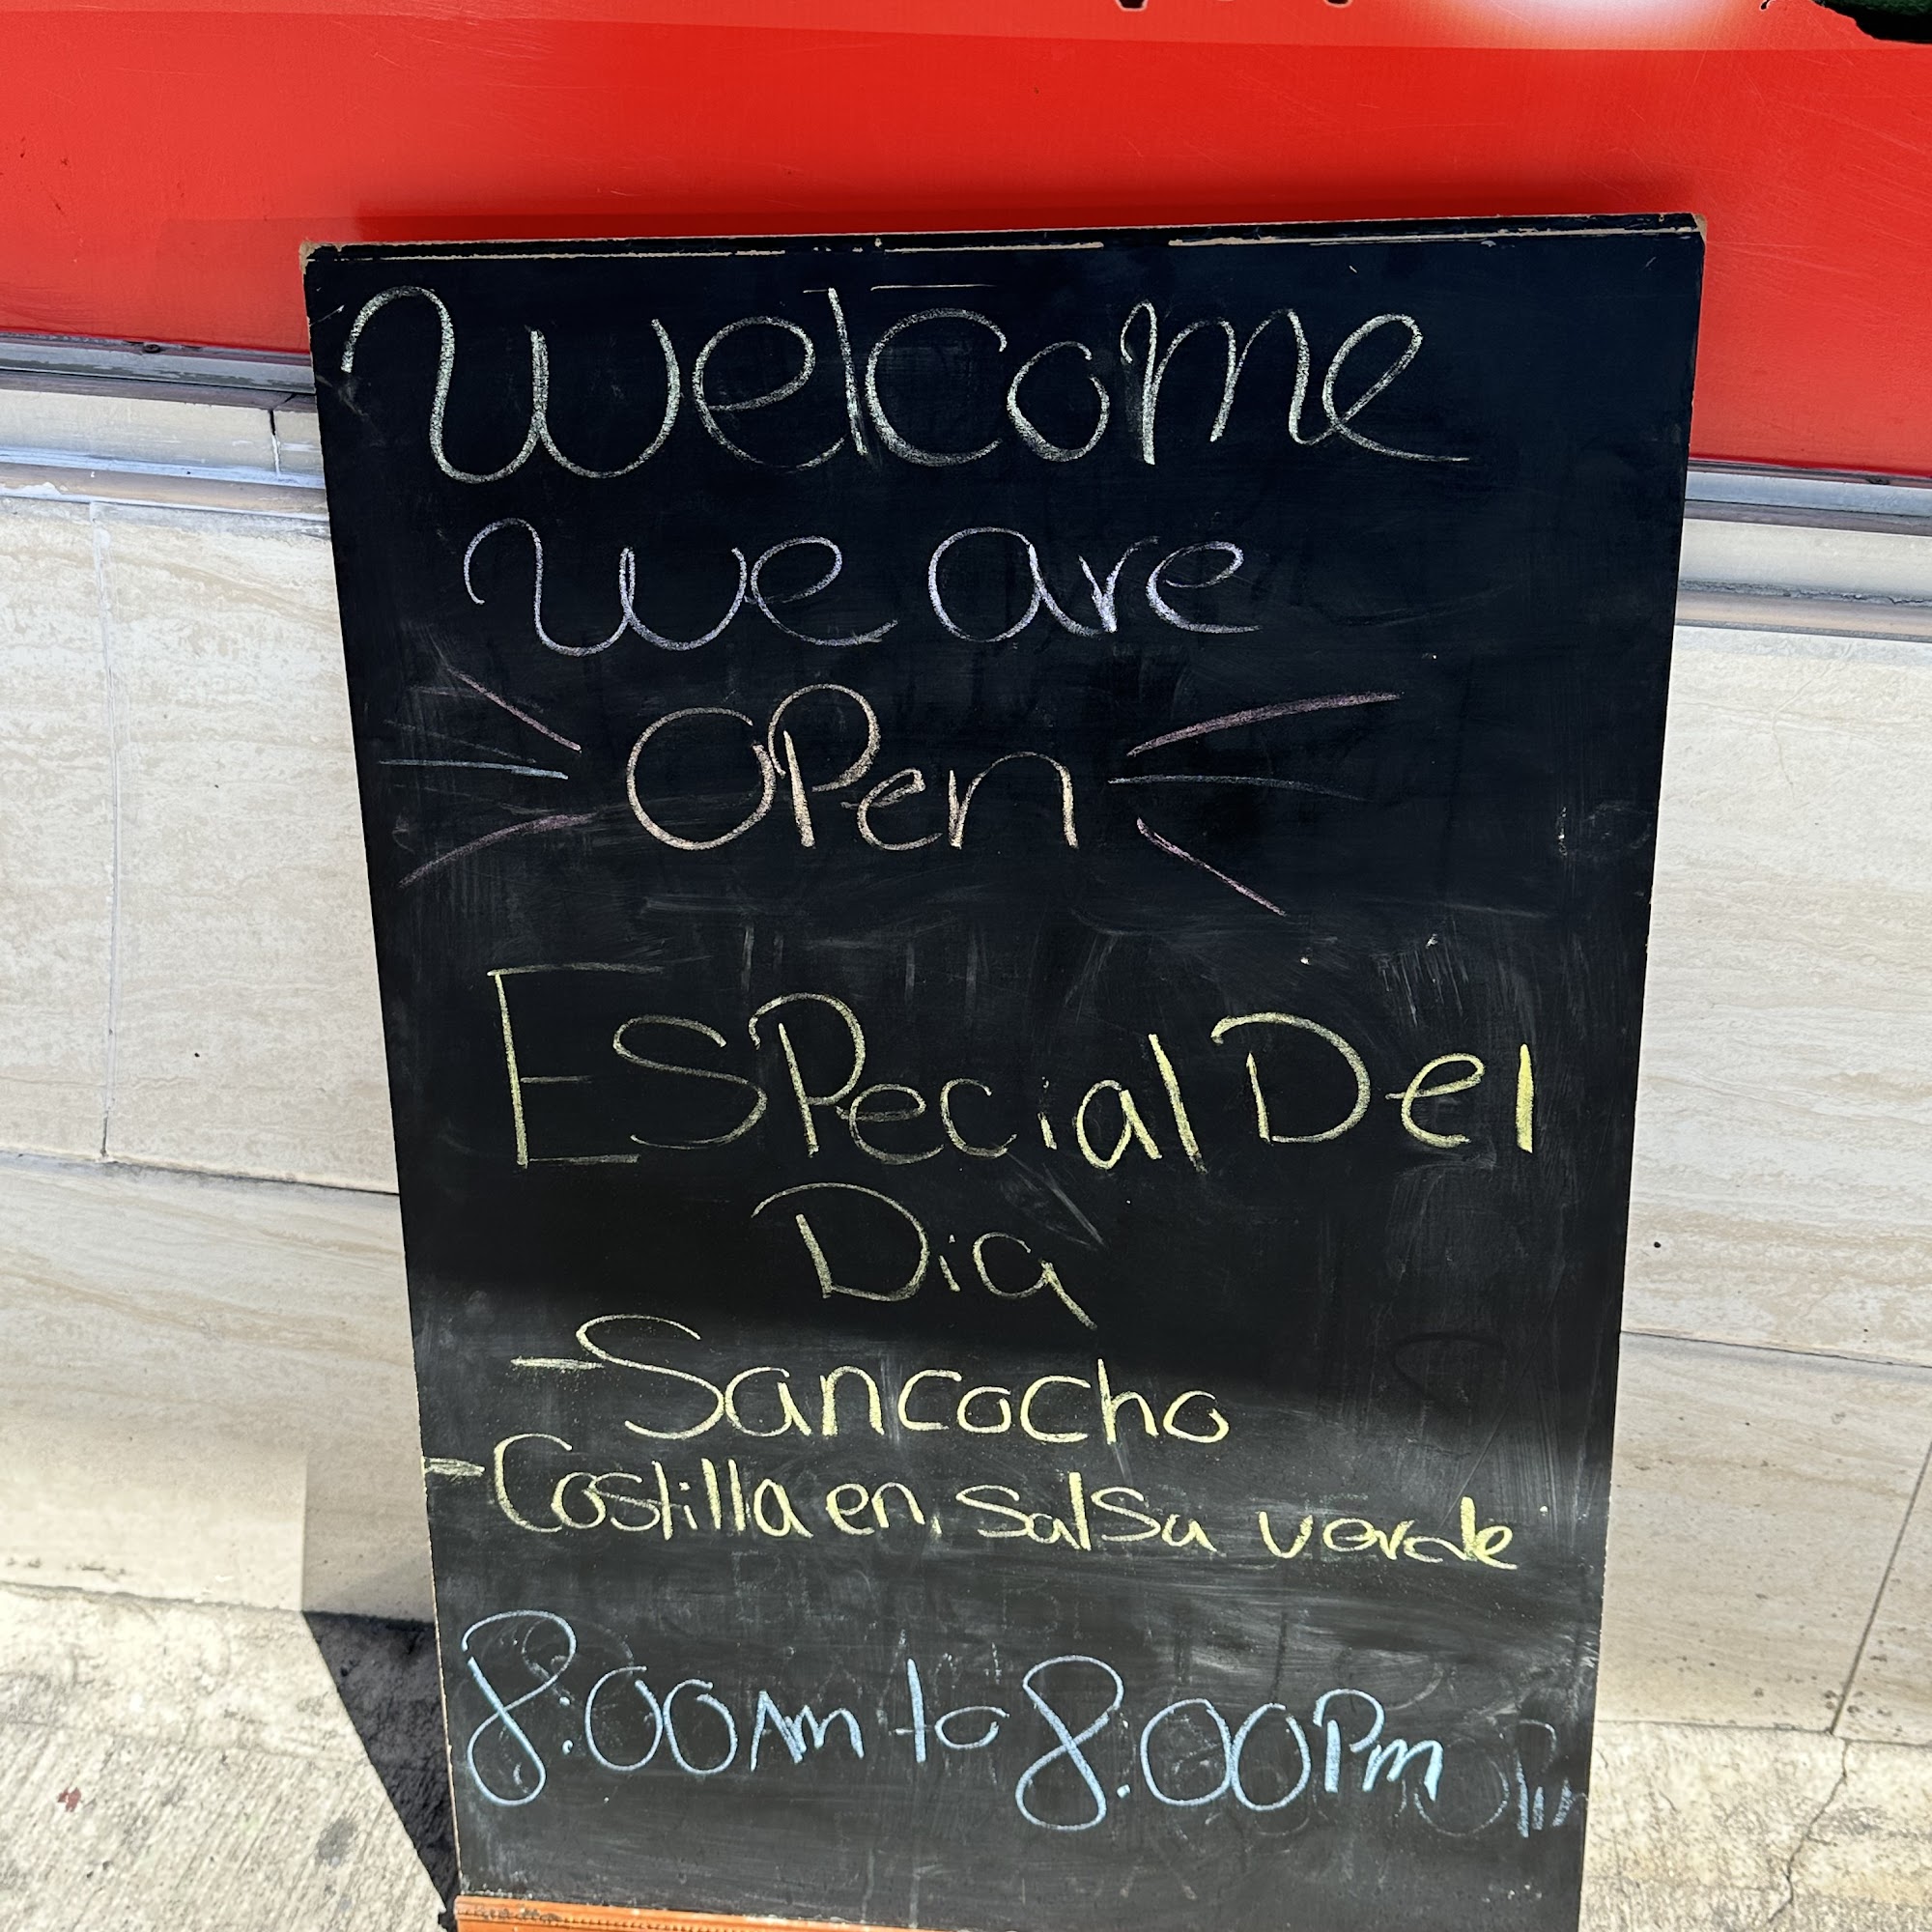 Welcome
We are
OPen
ESPecial Del
Dia
-Sancocho
-Costilla en salsa verde
8:00 Am to 8:00 Pm